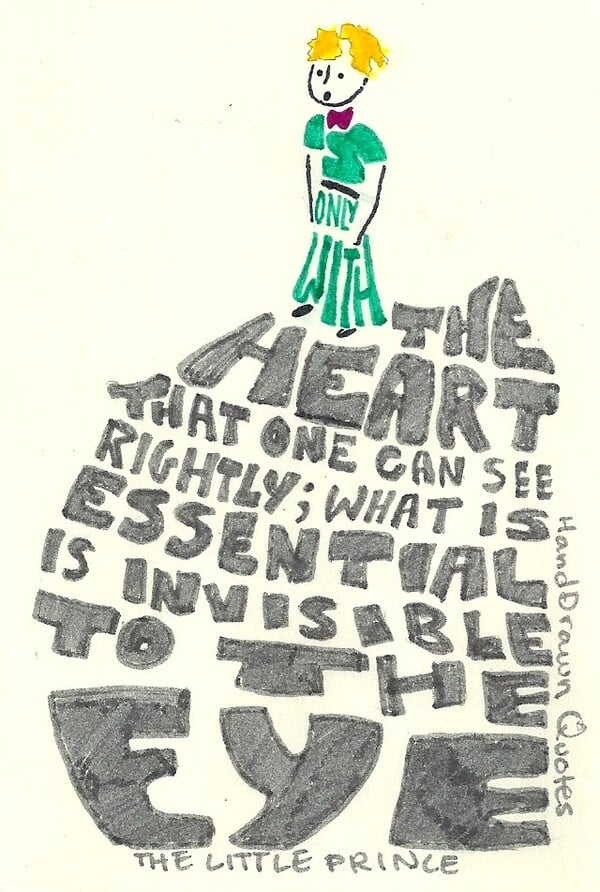 ONLY
WITH
THE
HEART
THAT ONE CAN SEE
RIGHTLY; WHAT IS
ESSENTIAL
IS INVISIBLE
TO THE
EYE
THE LITTLE PRINCE
HandDrawn Quotes